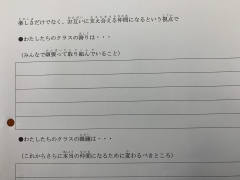 楽しさだけでなく、お互いに支え合える仲間になるという視点で
●わたしたちのクラスの誇りは・・・
(みんなで頑張って取り組んでいること)
●わたしたちのクラスの課題は・・・
(これからさらに本当の仲間になるために変わるべきところ)